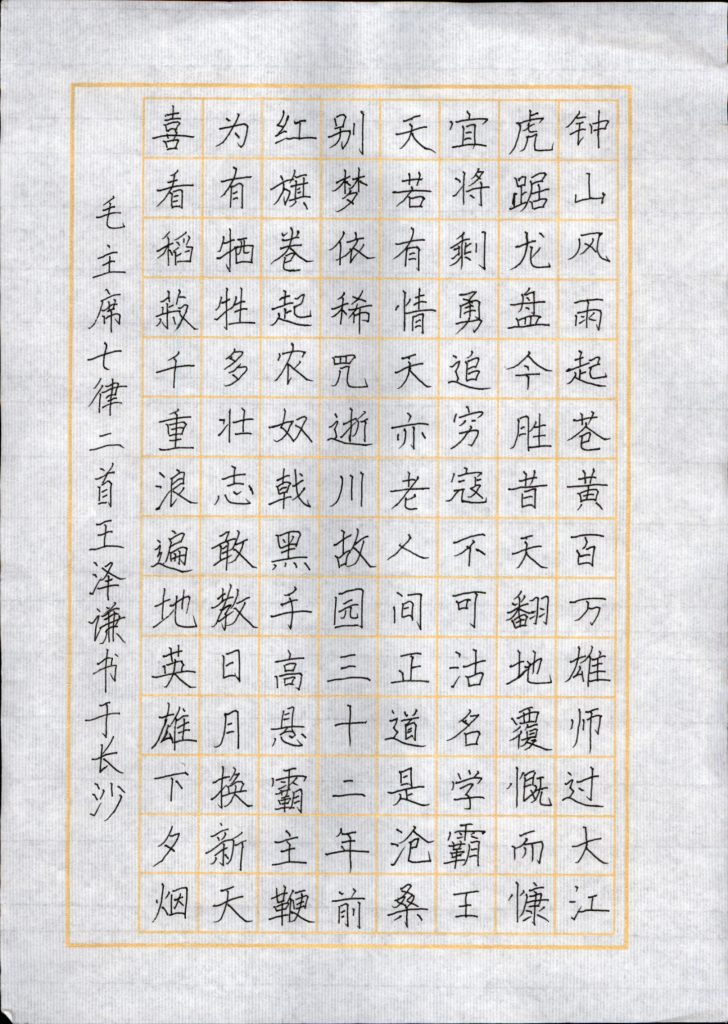 钟山风雨起苍黄百万雄师过大江
虎踞龙盘今胜昔天翻地覆慨而慷
宜将剩勇追穷寇不可沽名学霸王
天若有情天亦老人间正道是沧桑
别梦依稀咒逝川故园三十二年前
红旗卷起农奴戟黑手高悬霸主鞭
为有牺牲多壮志敢教日月换新天
喜看稻菽千重浪遍地英雄下夕烟
毛主席七律二首王泽谦书于长沙